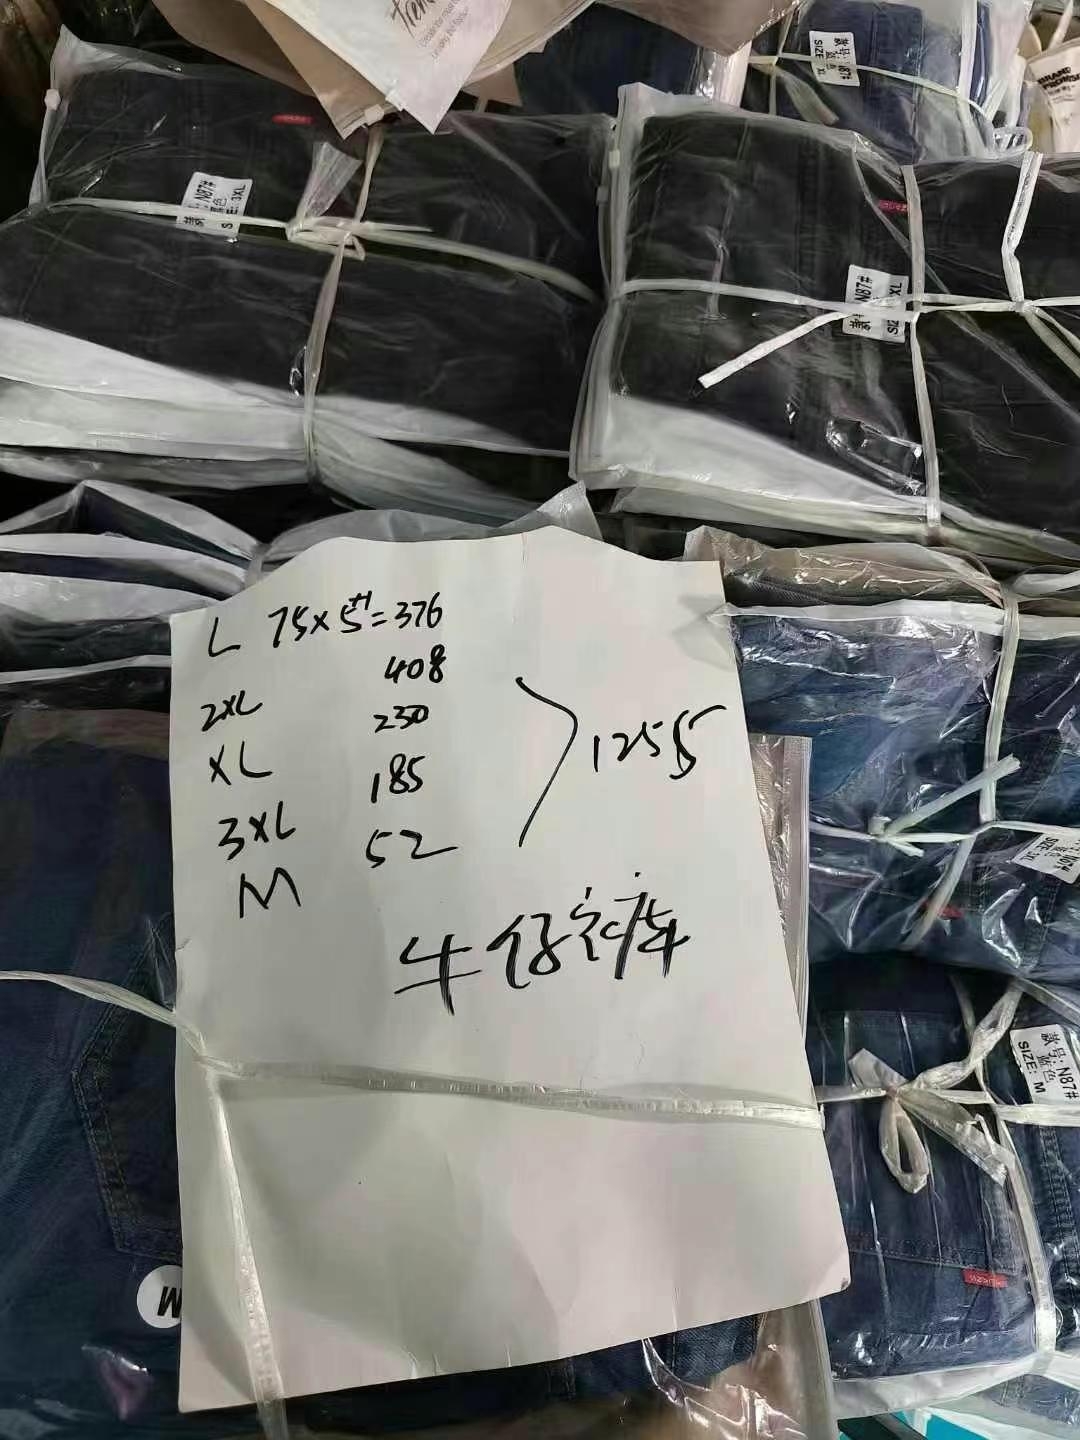 Trend
款号: N87#
SIZE: XL
N87#
3XL
N87#
XL
L 75×5+1=376
2XL 408
XL 230
3XL 185
M 52
1255
牛仔裤
款号: N87#
蓝色
SIZE: M
M